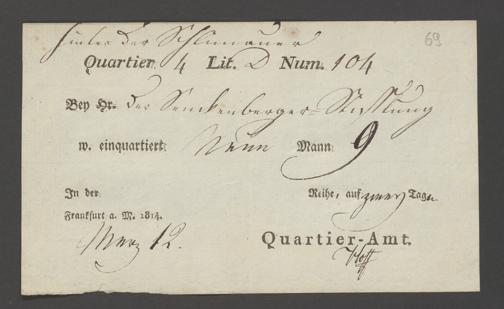 hinter der Schlimauer
69
Quartier 4 Lit. D Num. 104
Bey Hr. der Senckenberger-Stiftung
w. einquartiert: Neun Mann: 9
In der Reihe, auf zwey Tage
Frankfurt a. M. 1814.
Merz 12.
Quartier-Amt.